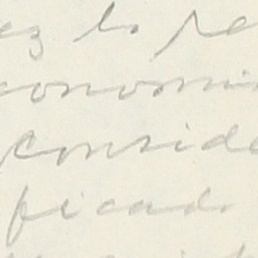 ez lo re
conomi
conside
ficad